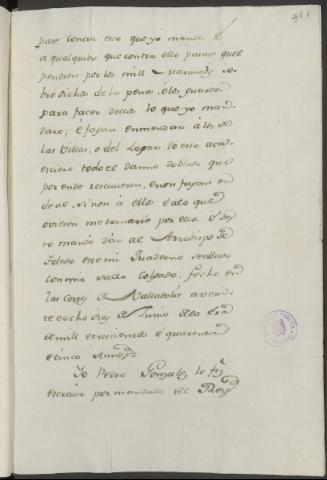 301
pase contra esto que yo mando. E
a qualquier que contra ello pasare quel
pendren por los mill Maravedis so-
bredichos de la pena, e los guarden
para facer dellos lo que yo man-
dare; é fagan enmendar á los de
las Villas, o del Logar do esto acae-
sciere todo el danno doblado que
por ende rescivieren, e non fagan en-
de al, si non á ellos e a lo que
ovieren me tornaria por ello. E des-
to mandé dar al Arzobispo de
Toledo este mi Quaderno seellado
con mio seello Colgado. fecho en
las Cortes de Valladolit a veinte
e ocho dias de Junio de la Era
de mill e trescientos é quarenta
e cinco Annos.
Yo Pedro Gonzalez lo fiz
escrevir por mandado del Rey